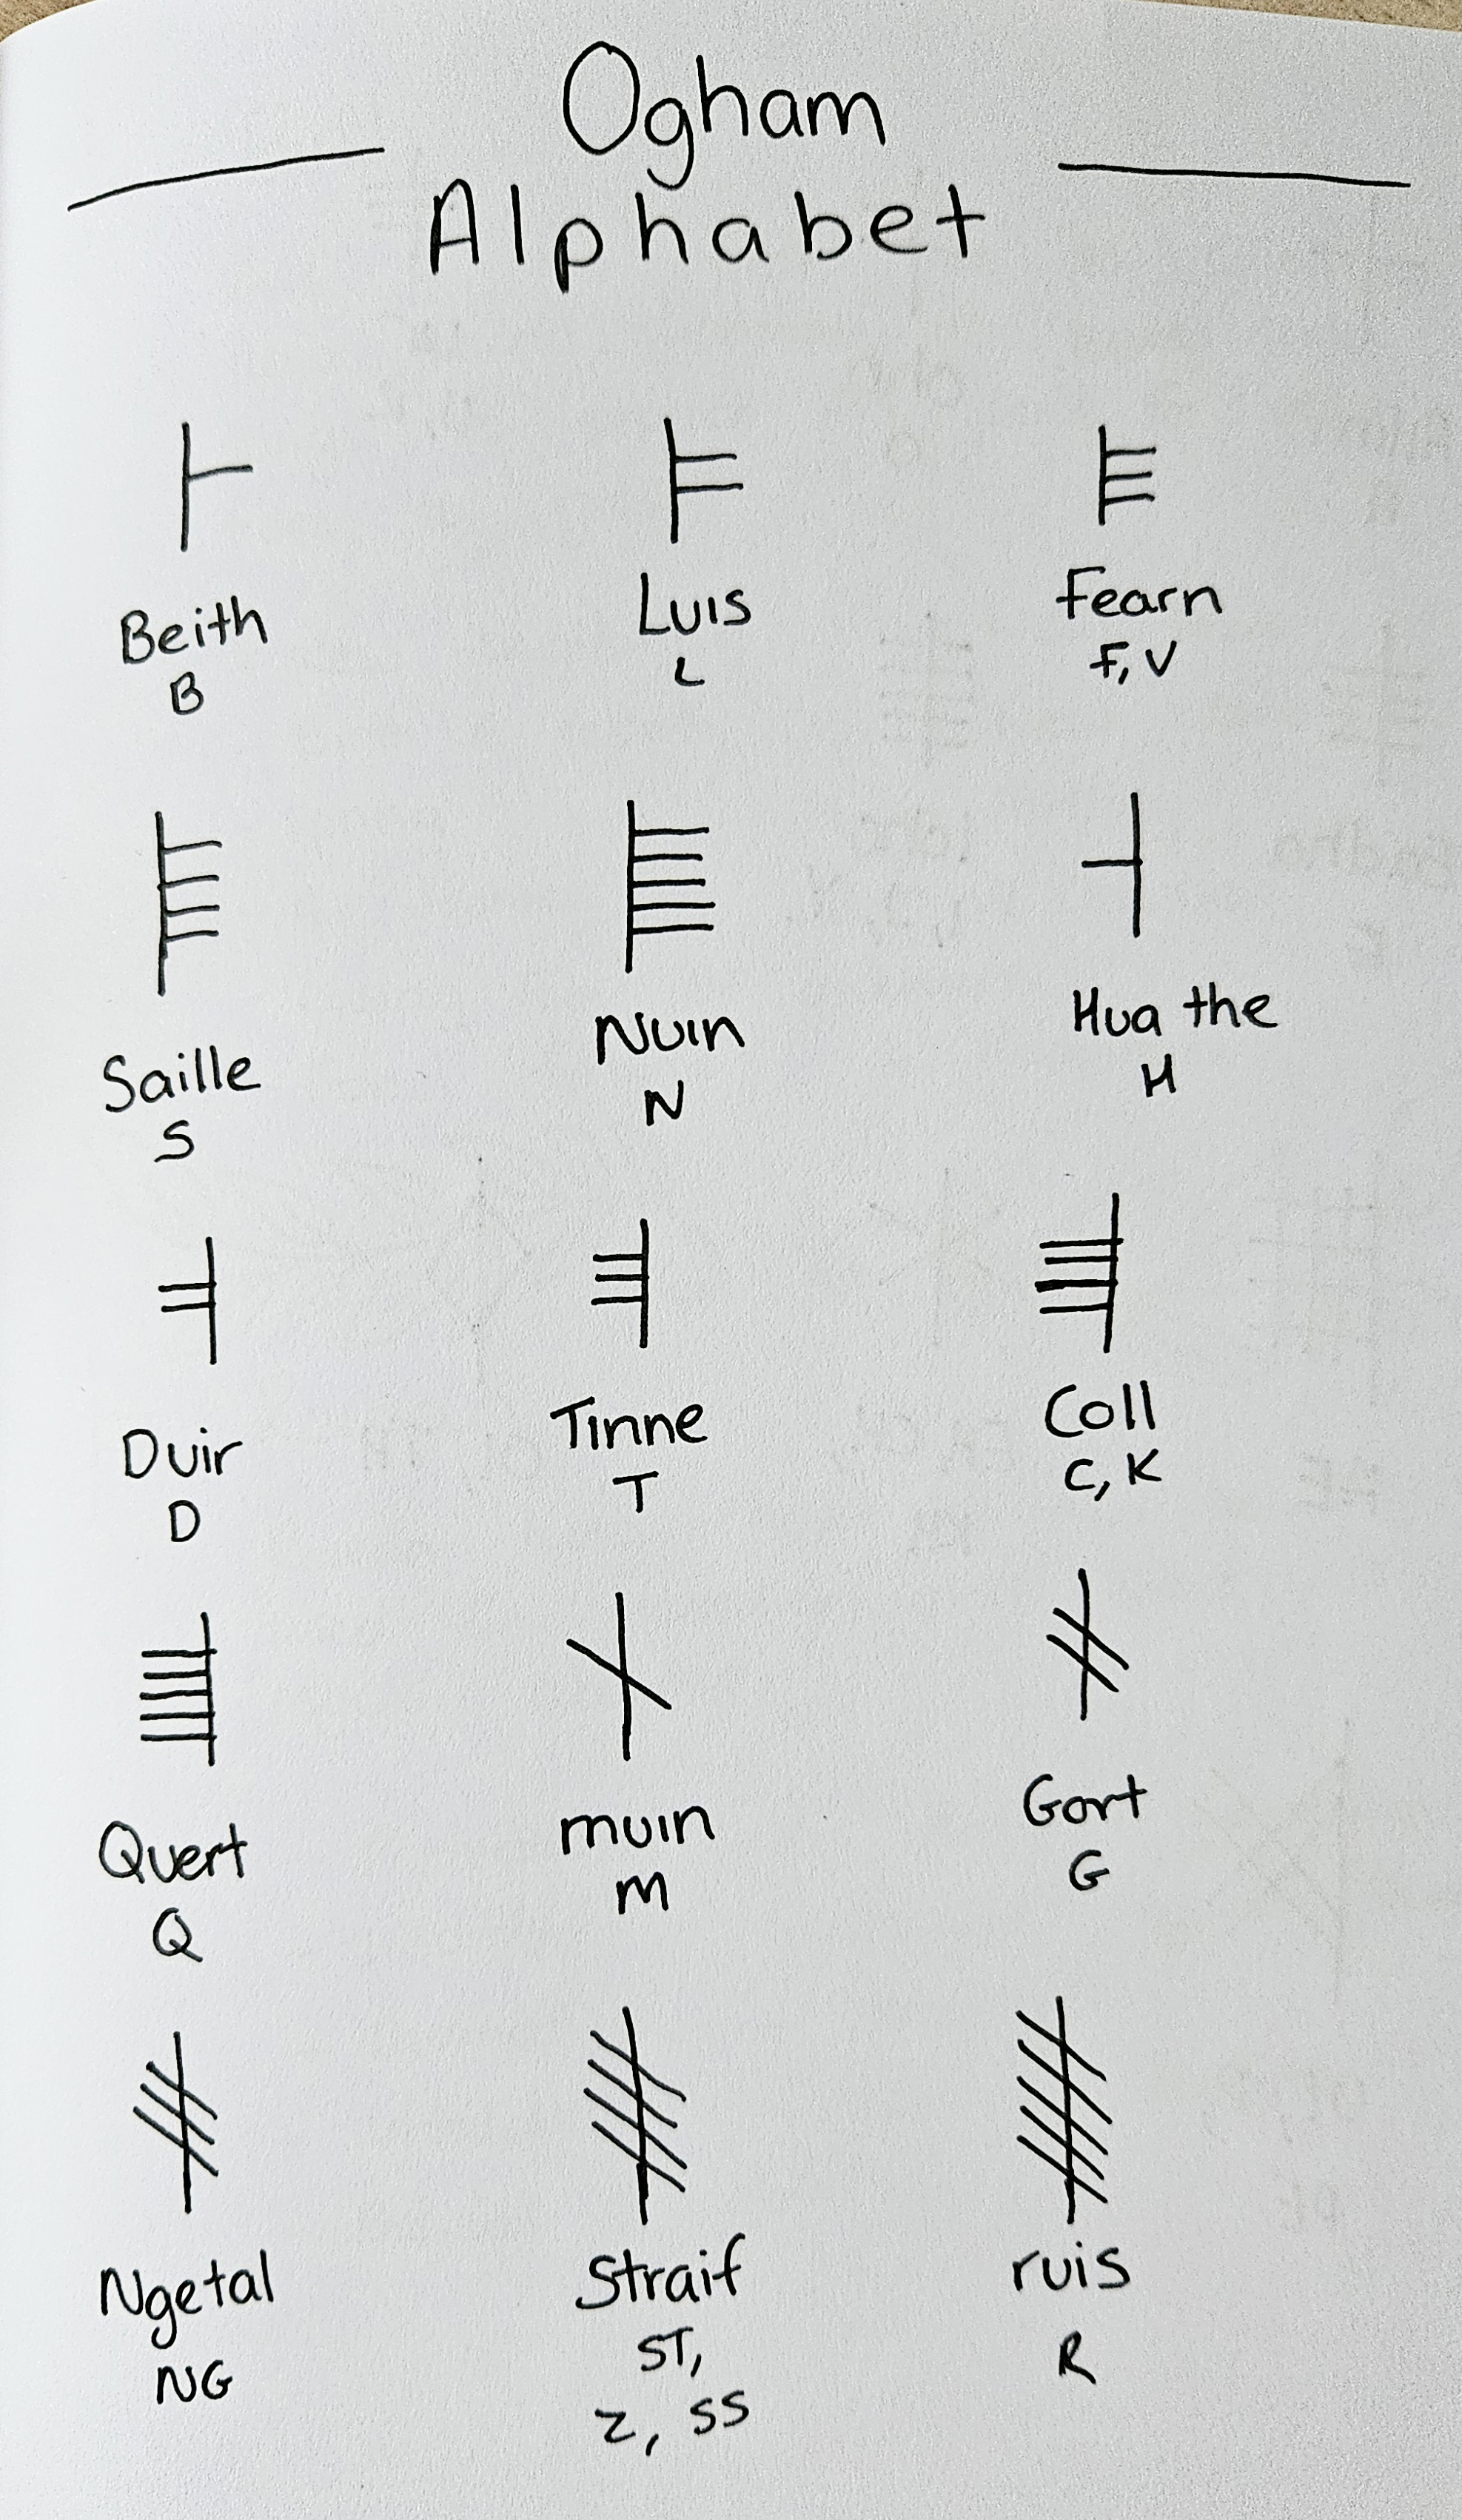 Ogham
Alphabet
ᚁ ᚂ ᚃ
Beith Luis Fearn
B L F, V
ᚄ ᚅ ᚆ
Saille Nuin Hua the
S N H
ᚇ ᚈ ᚉ
Duir Tinne Coll
D T C, K
ᚊ ᚋ ᚌ
Quert muin Gort
Q M G
ᚍ ᚎ ᚏ
Ngetal Straif ruis
NG ST, R
Z, SS